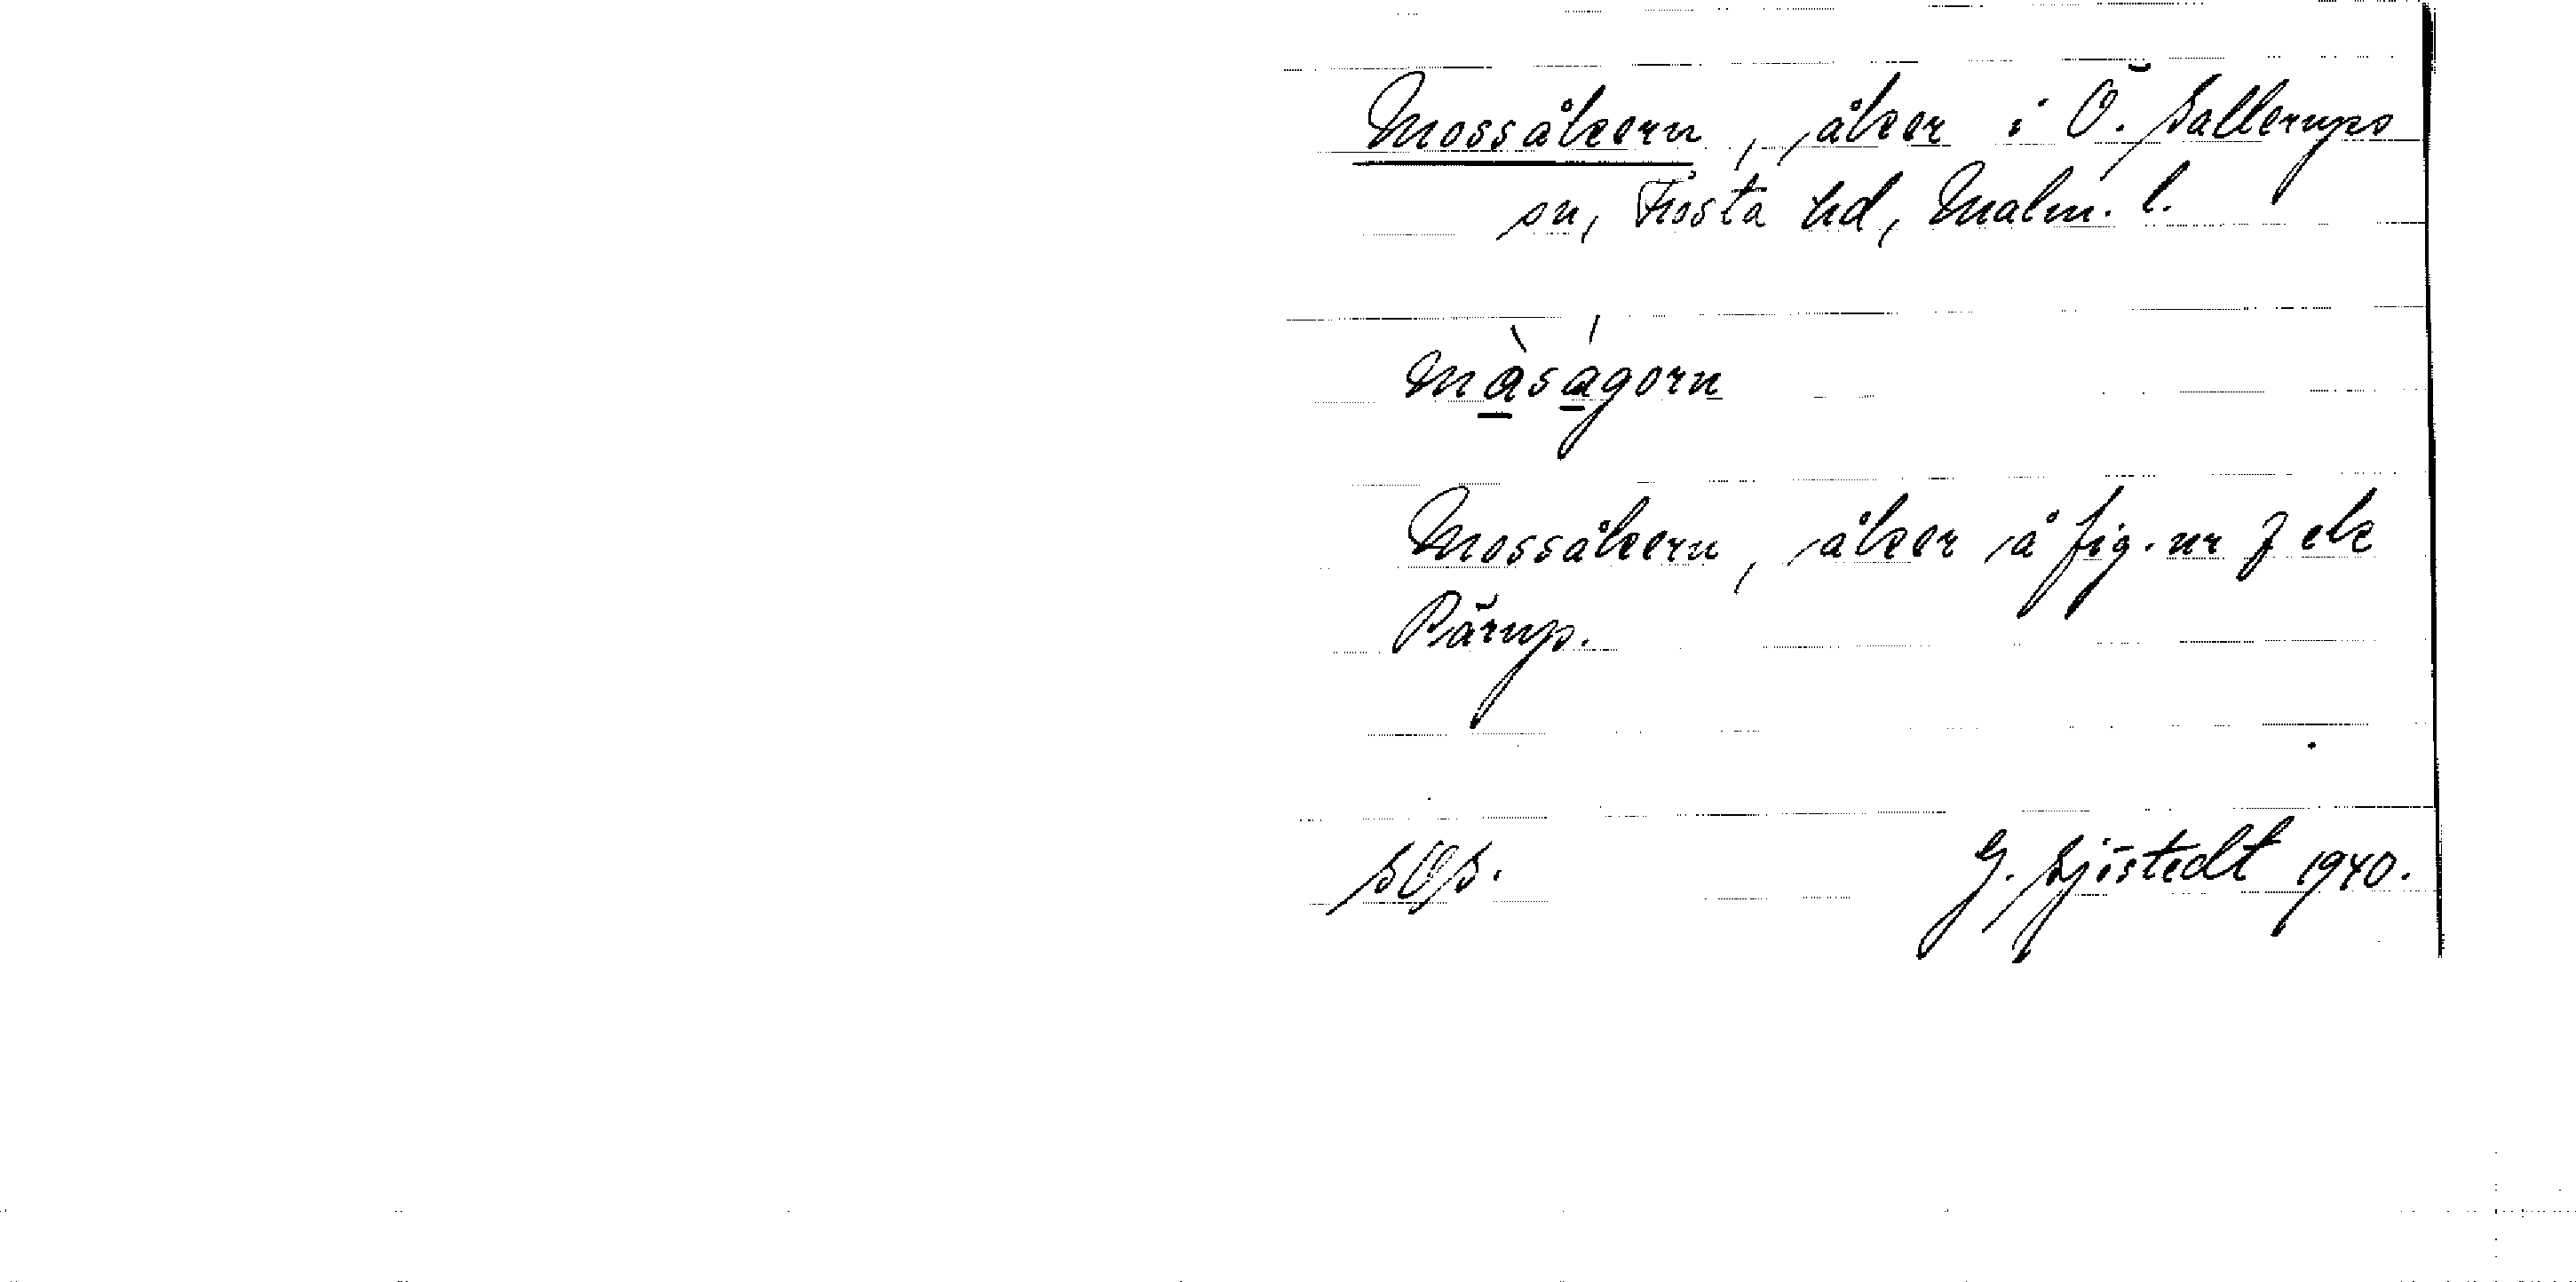 Mossåkern, åker i Ö. Sallerups
sn, Frosta hd, Malm. l.
màságorn
Mossåkern, åker å fig. nr 7 ek
Pärup.
SOS.
G. Sjöstedt 1940.